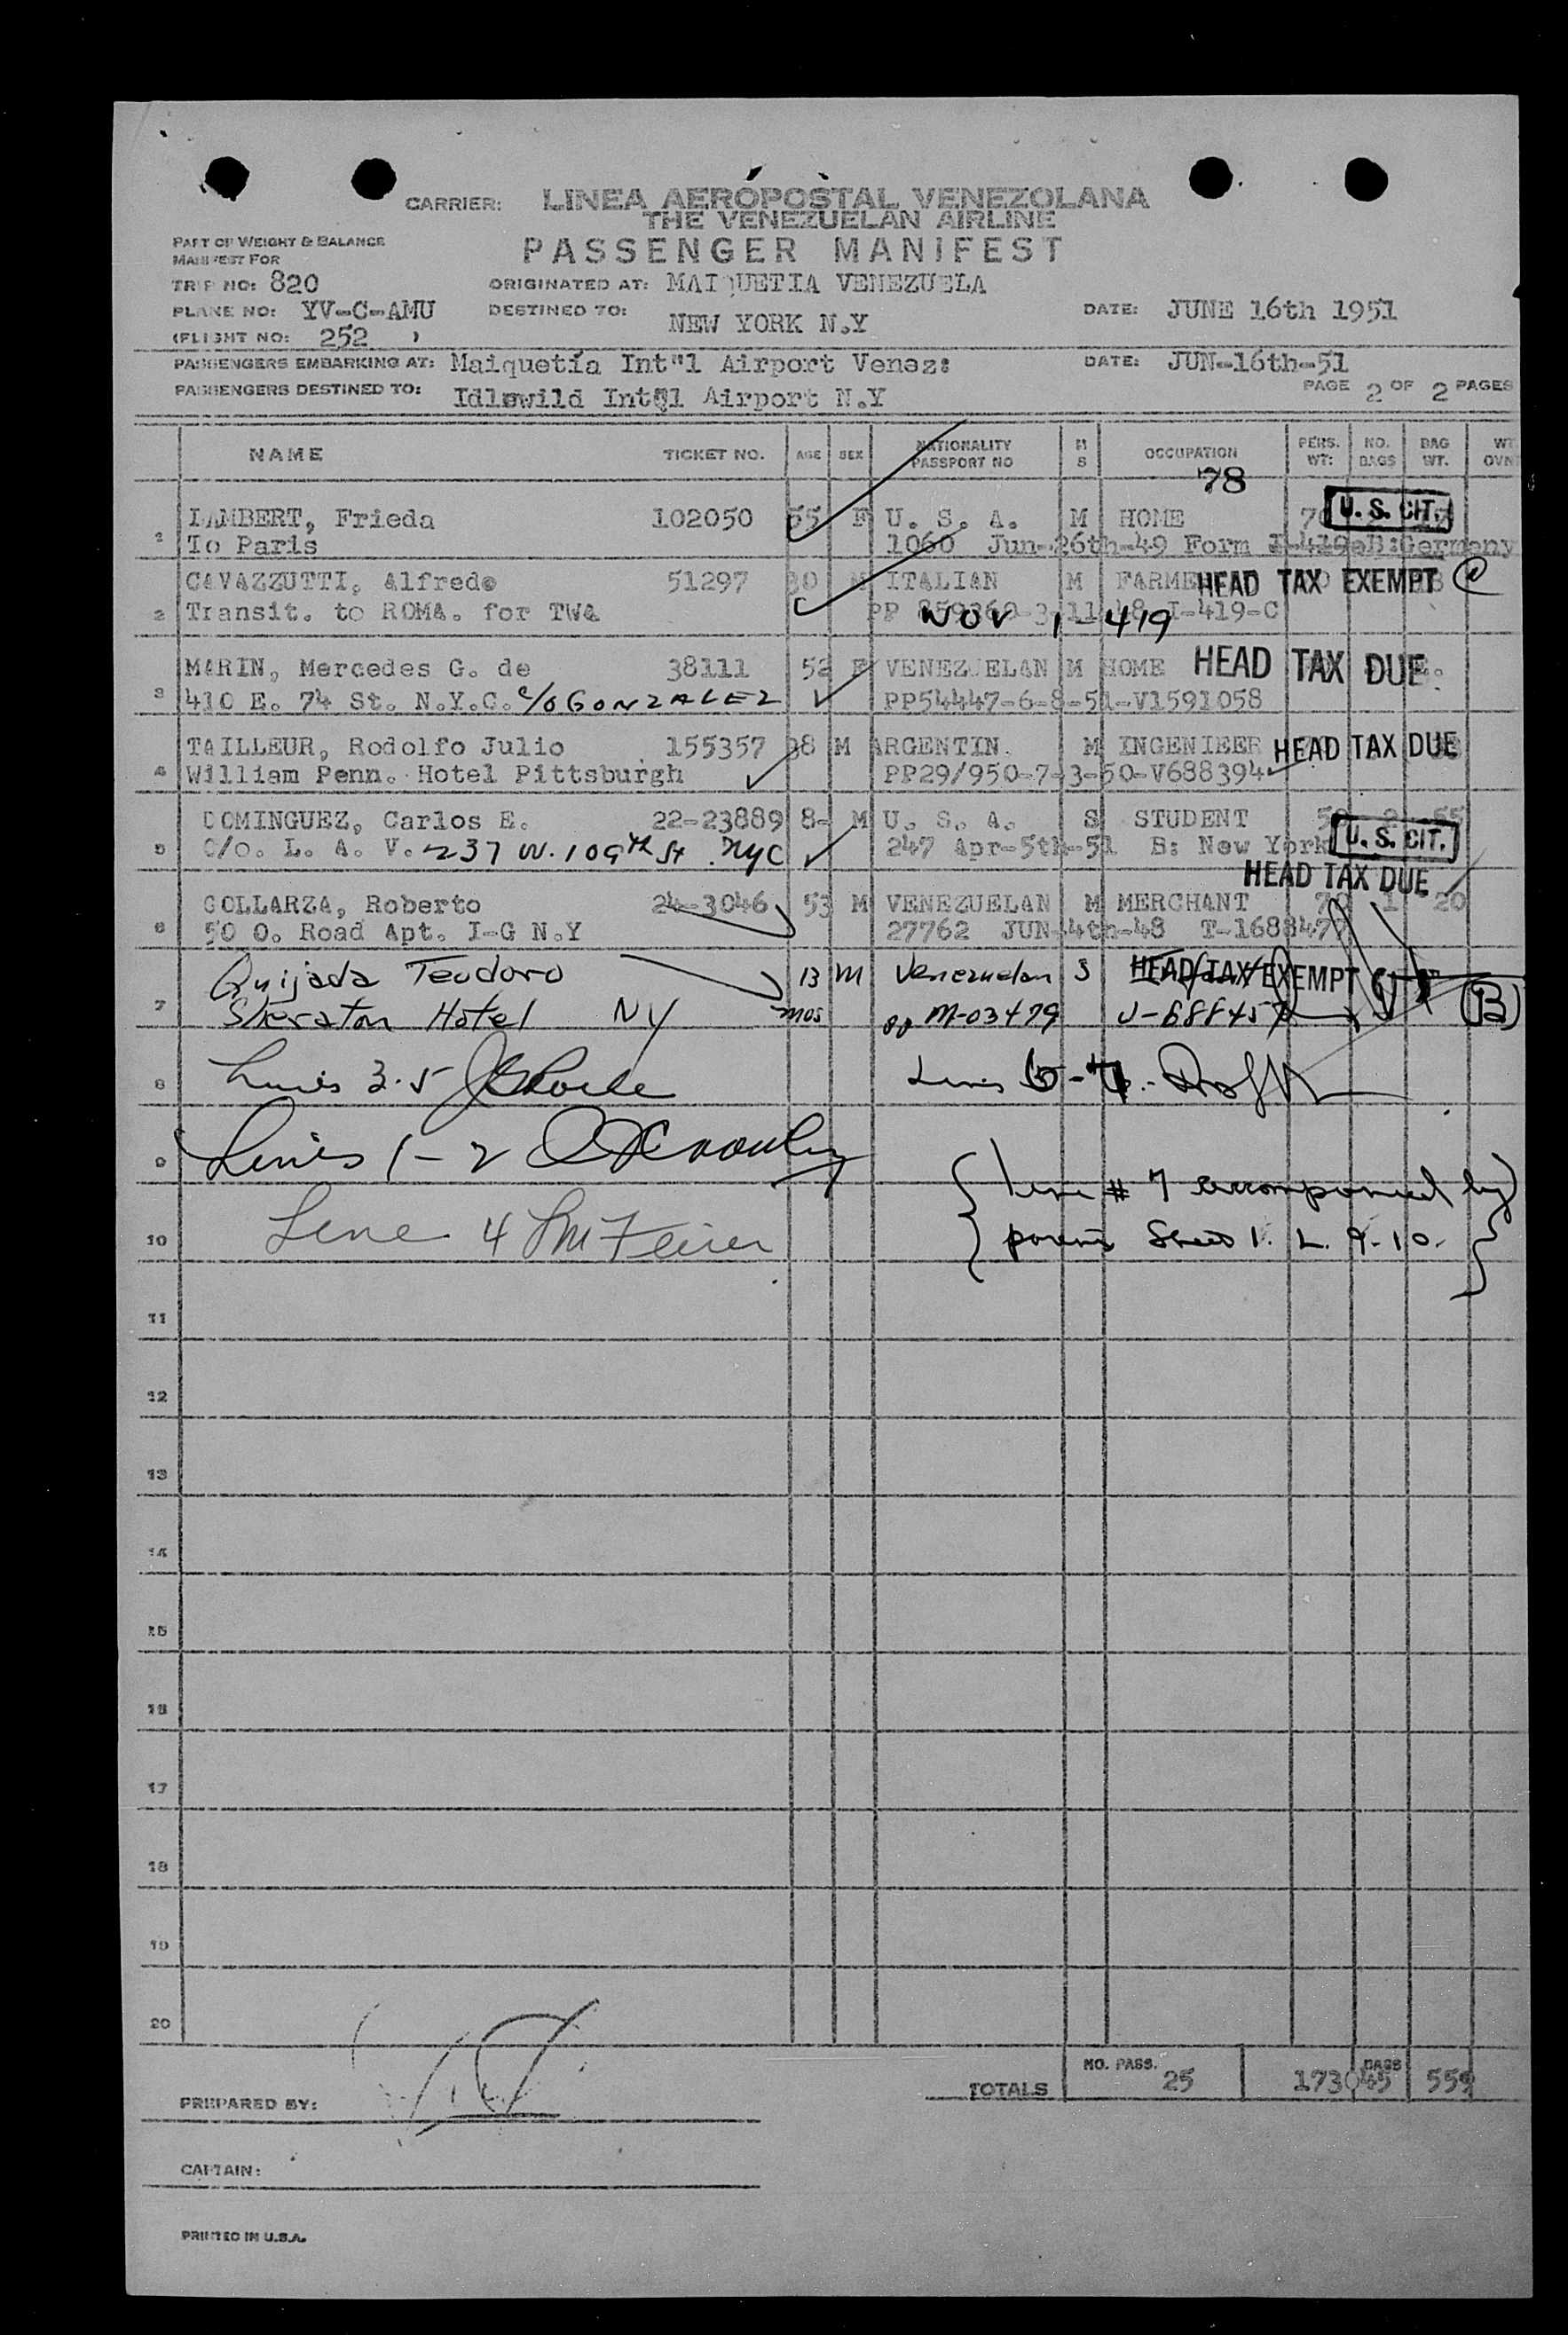 CARRIER: LINEA AEROPOSTAL VENEZOLANA
THE VENEZUELAN AIRLINE
PASSENGER MANIFEST
PART OF WEIGHT & BALANCE
MANIFEST FOR
TRIP NO: 820 ORIGINATED AT: MAIQUETIA VENEZUELA
PLANE NO: YV-C-AMU DESTINED TO: NEW YORK N.Y DATE: JUNE 16th 1951
(FLIGHT NO: 252 )
PASSENGERS EMBARKING AT: Maiquetía Int"l Airport Venez: DATE: JUN-16th-51
PAGE 2 OF 2 PAGES
PASSENGERS DESTINED TO: Idlewild Int"l Airport N.Y
NAME TICKET NO. AGE SEX NATIONALITY PASSPORT NO M S OCCUPATION PERS. WT: NO. BAGS BAG WT. WT OVN
78
1 LAMBERT, Frieda 102050 55 F U. S. A. M HOME U. S. CIT.
To Paris 1060 Jun-26th-49 Form I-419 B:Germany
2 CAVAZZUTTI, Alfredo 51297 30 M ITALIAN M FARMER HEAD TAX EXEMPT
Transit. to ROMA. for TWA PP I-419-C
NOV 1-419
3 MARIN, Mercedes G. de 38111 52 F VENEZUELAN M HOME HEAD TAX DUE
410 E. 74 St. N.Y.C. c/o GONZALEZ PP54447-6-8-51-V1591058
4 TAILLEUR, Rodolfo Julio 155357 38 M ARGENTIN. M INGENIEER HEAD TAX DUE
William Penn. Hotel Pittsburgh PP29/950-7-3-50-V688394
5 DOMINGUEZ, Carlos E. 22-23889 8- M U. S. A. S STUDENT 50 2 55
C/o. L. A. V. 237 W. 109th St. NYC 247 Apr-5th-51 B: New York U. S. CIT.
HEAD TAX DUE
6 GOLLARZA, Roberto 24-3046 53 M VENEZUELAN M MERCHANT 70 1 20
50 O. Road Apt. I-G N.Y 27762 JUN-4th-48 T-1688477
7 Quijada Teodoro 13 M Venezuelan S HEAD TAX EXEMPT
Sheraton Hotel NY mos pp M-03479 V-688457 B
8 Lines 3-5 Lines 6-7
9 Lines 1-2
{line # 7 accompanied by}
10 Line 4 {parents Sheet 1. L. 9-10.}
11
12
13
14
15
16
17
18
19
20
TOTALS NO. PASS. 25 1730 BAGS 45 559
PREPARED BY:
CAPTAIN:
PRINTED IN U.S.A.